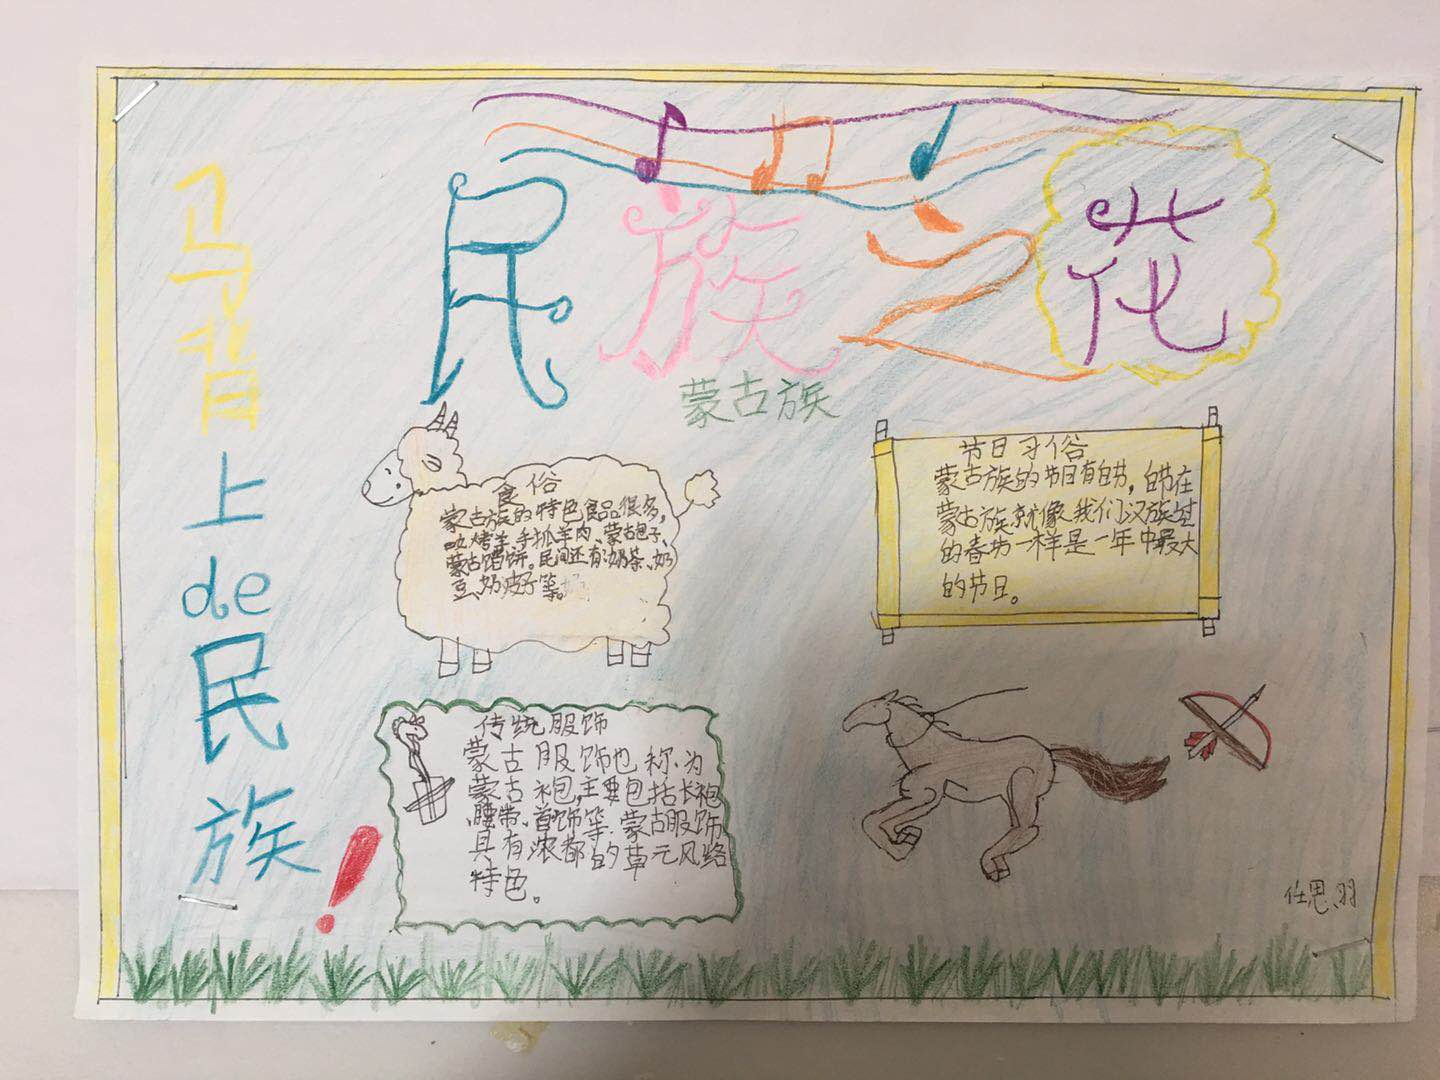 民族之花
蒙古族
马背上de民族!
食俗
蒙古族的特色食品很多,
烤羊、手抓羊肉、蒙古包子、
蒙古馅饼。民间还有奶茶、奶
豆、奶皮子等。
节日习俗
蒙古族的节日有白节,白节在
蒙古族就像我们汉族过
的春节一样是一年中最大
的节日。
传统服饰
蒙古服饰也称为
蒙古袍,主要包括长袍
、腰带、首饰等.蒙古服饰
具有浓都的草元风络
特色。
任思羽